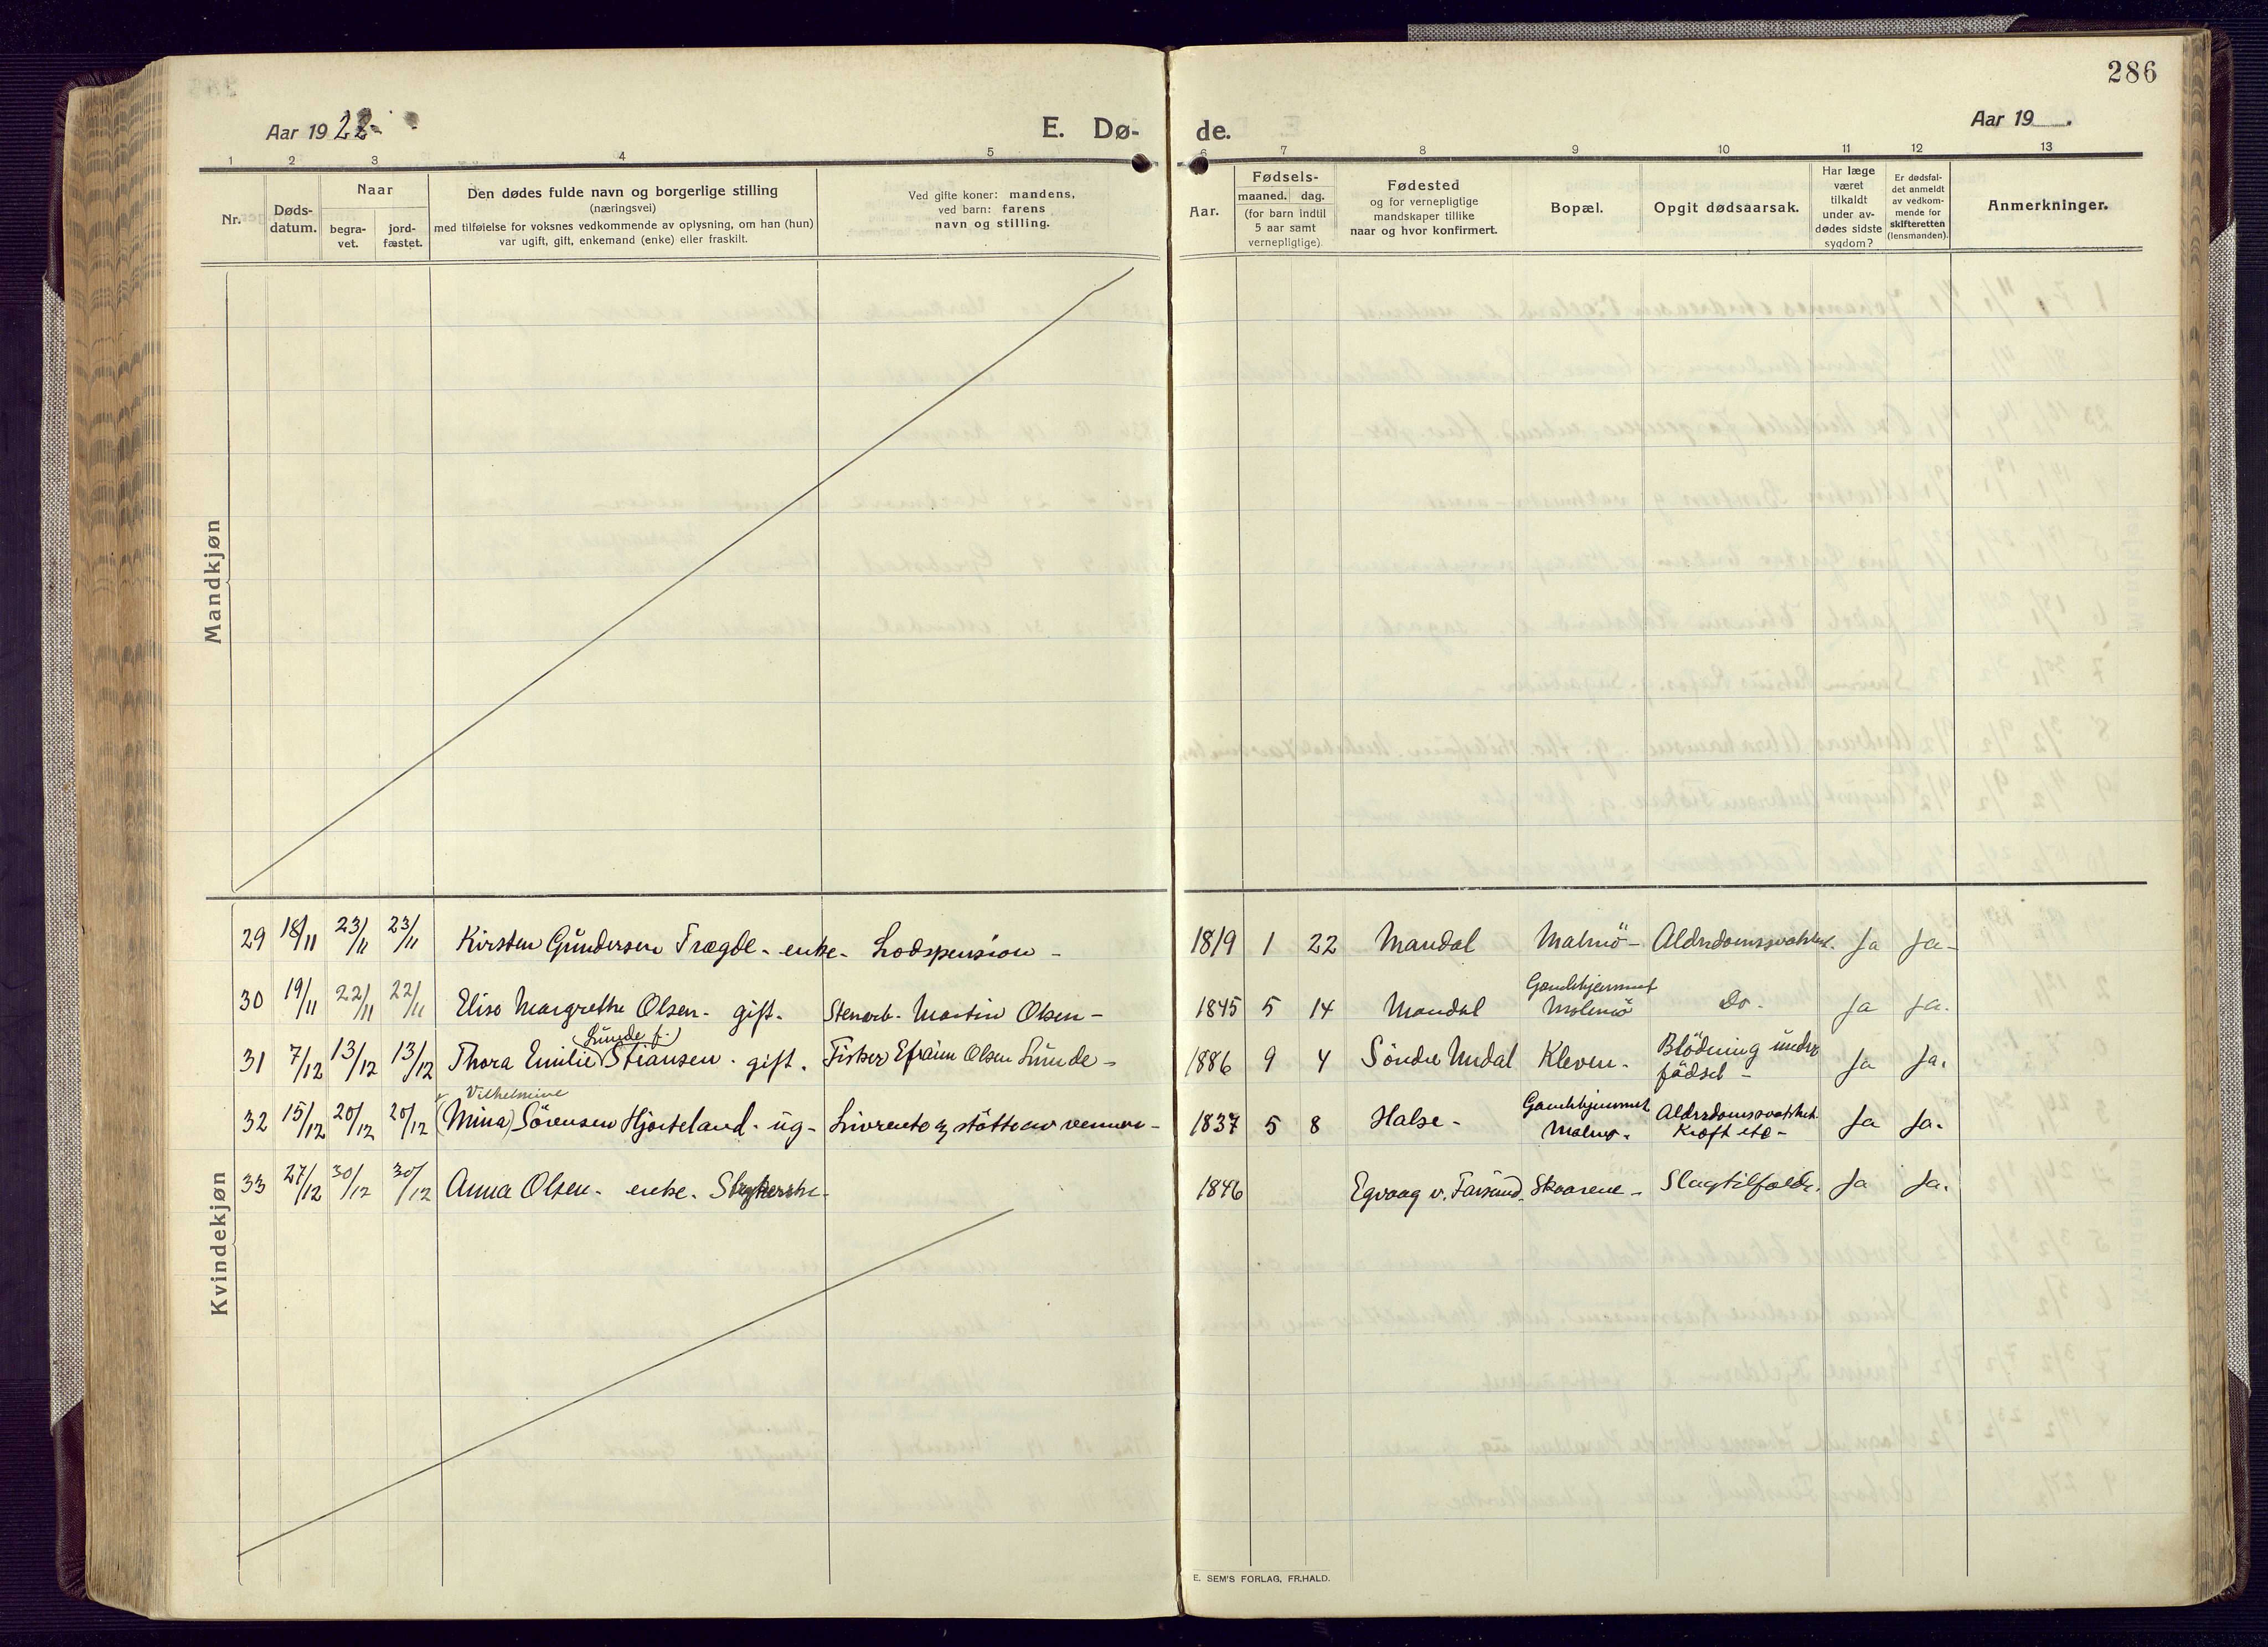 286
Aar 1922-
E. Dø-
de.
Aar 19 .
1 2 3 4 5 6 7 8 9 10 11 12 13
Nr.
Døds-
datum.
Naar
begra-
vet.
jord-
fæstet.
Den dødes fulde navn og borgerlige stilling
(næringsvei)
med tilføielse for voksnes vedkommende av oplysning, om han (hun)
var ugift, gift, enkemand (enke) eller fraskilt.
Ved gifte koner: mandens,
ved barn: farens
navn og stilling.
Aar.
Fødsels-
maaned. dag.
(for barn indtil
5 aar samt
vernepligtige)
Fødested
og for vernepligtige
mandskaper tillike
naar og hvor konfirmert.
Bopæl.
Opgit dødsaarsak.
Har læge
været
tilkaldt
under av-
dødes sidste
sygdom?
Er dødsfal-
det anmeldt
av vedkom-
mende for
skifteretten
(lensmanden).
Anmerkninger.
Mandkjøn
Kvindekjøn
29 18/11 23/11 23/11 Kirsten Gundersen Trægde - enke - Lodspension - 1819 1 22 Mandal Malmö - Ja Ja -
30 19/11 22/11 22/11 Elise Margrethe Olsen - gift. Stenarb. Martin Olsen - 1845 5 14 Mandal Gamlehjemmet Malmö Do. Ja Ja.
Lunde f.
31 7/12 13/12 13/12 Thora Emilie Stiansen - gift. Fisker Efraim Olsen Lunde - 1886 9 4 Söndre Undal Kleven - Blödning under födsel - Ja Ja.
Vilhelmine
32 15/12 20/12 20/12 (Mina) Sörensen Hjorteland - ug - Livrente & stötte av venner - 1837 5 8 Halse - Gamlehjemmet Malmö - Aldersdomssvakhet Kræft etc - Ja Ja.
33 27/12 30/12 30/12 Anna Olsen - enke. Strykerske - 1846 Egvaag v. Farsund - Skaarene - Slagtilfælde. Ja Ja.
E. SEM'S FORLAG, FR.HALD.